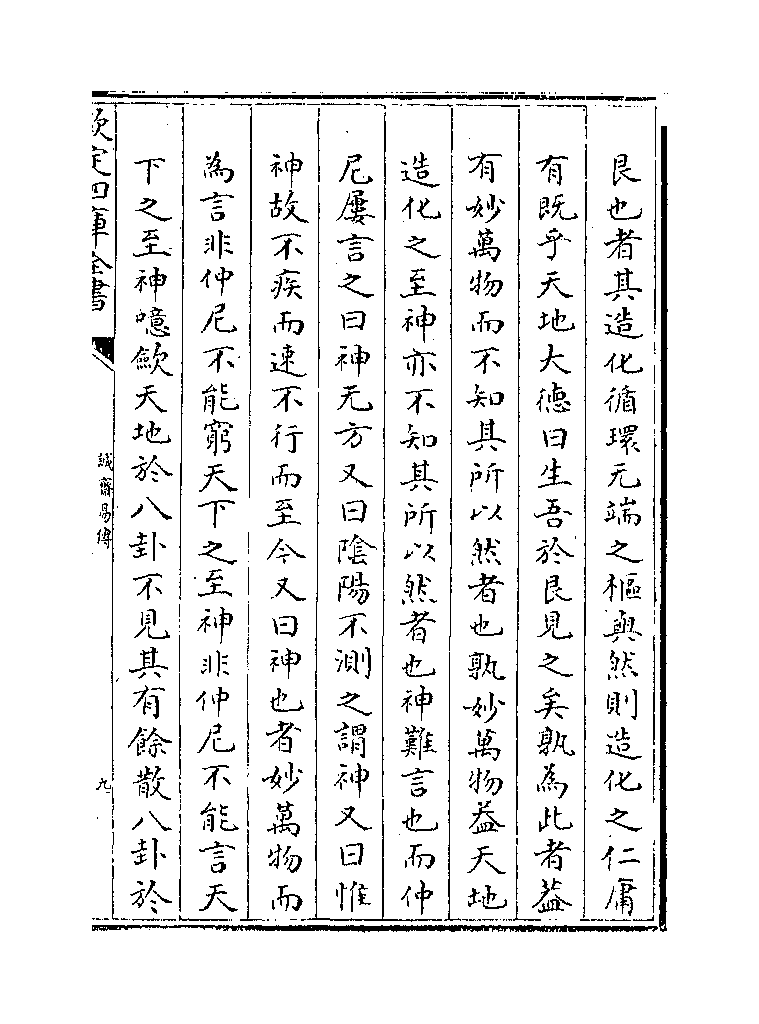 艮也者其造化循環无端之樞與然則造化之仁庸
有既乎天地大德曰生吾於艮見之矣孰為此者葢
有妙萬物而不知其所以然者也孰妙萬物葢天地
造化之至神亦不知其所以然者也神難言也而仲
尼屢言之曰神无方又曰陰陽不測之謂神又曰惟
神故不疾而速不行而至今又曰神也者妙萬物而
為言非仲尼不能窮天下之至神非仲尼不能言天
下之至神噫歛天地於八卦不見其有餘散八卦於
欽定四庫全書
誠齋易傳
九